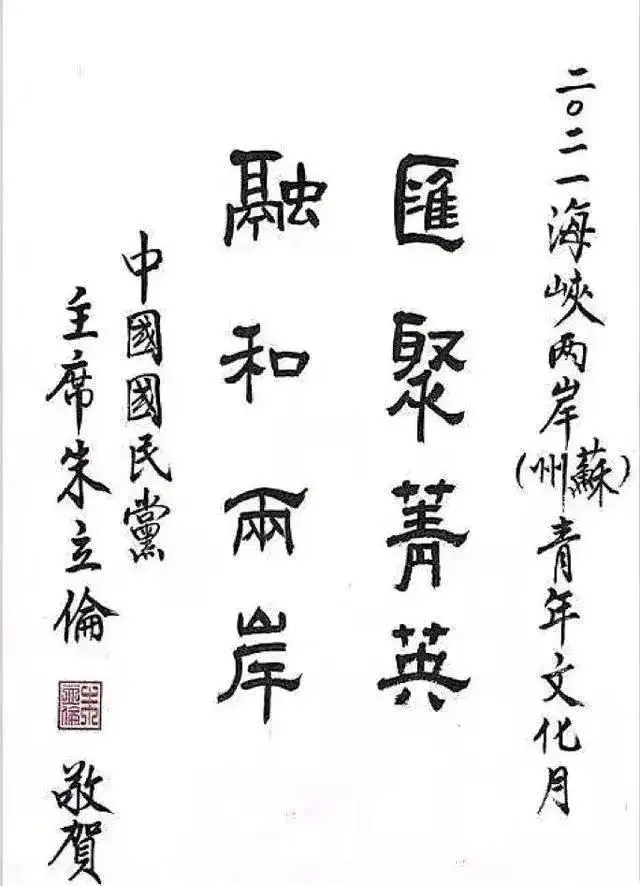 二〇二一海峽两岸(蘇州)青年文化月
匯聚菁英
融和兩岸
中國國民黨
主席朱立倫
敬賀
朱立倫